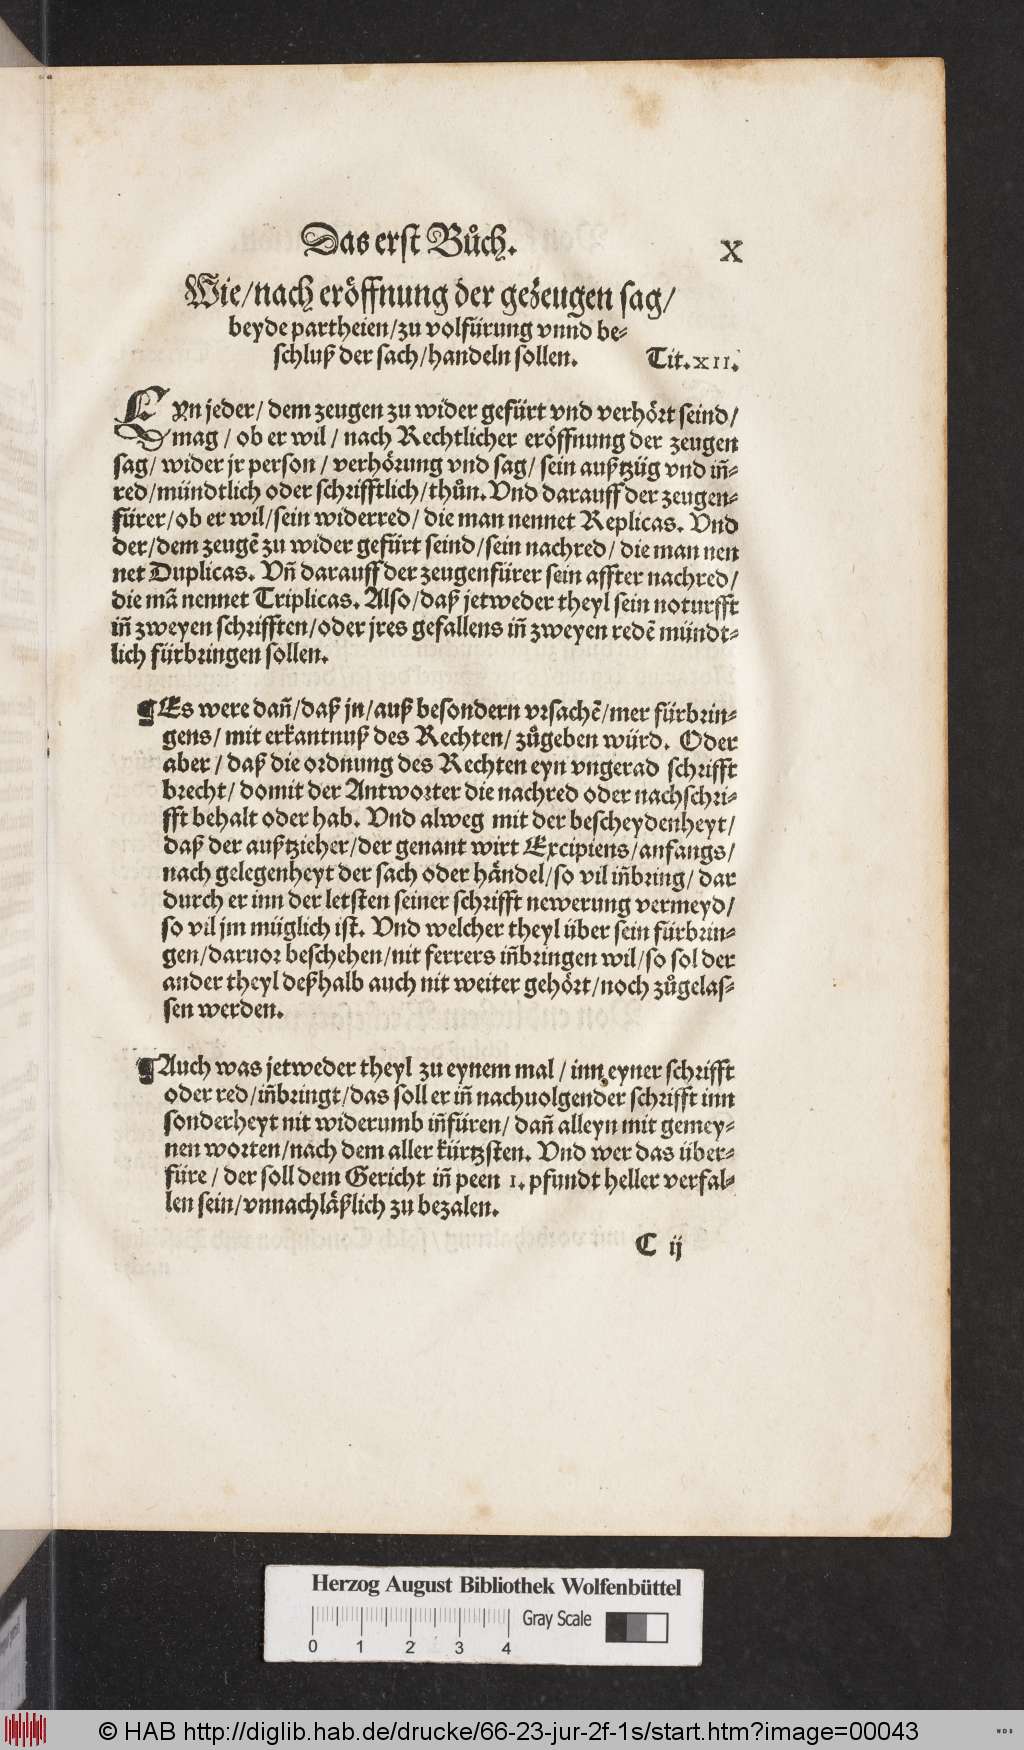 Das erst Bůch.
X
Wie/nach eröffnung der gezeugen sag/
beyde partheien/zu volfürung vnnd be-
schluß der sach/handeln sollen.
Tit.XII.
EYn jeder/ dem zeugen zu wider gefürt vnd verhört seind/
mag / ob er wil / nach Rechtlicher eröffnung der zeugen
sag/ wider jr person / verhörung vnd sag/ sein außtzüg vnd iñ-
red/mündtlich oder schrifftlich/thůn. Vnd darauff der zeugen-
fürer/ob er wil/sein widerred/ die man nennet Replicas. Vnd
der/dem zeugẽ zu wider gefürt seind/sein nachred/ die man nen
net Duplicas. Vñ darauff der zeugenfürer sein affter nachred/
die mã nennet Triplicas. Also/daß jetweder theyl sein noturfft
iñ zweyen schrifften/oder jres gefallens iñ zweyen redẽ mündt-
lich fürbringen sollen.
¶Es were dañ/daß jn/auß besondern vrsachẽ/mer fürbrin-
gens/ mit erkantnuß des Rechten/ zůgeben würd. Oder
aber / daß die ordnung des Rechten eyn vngerad schrifft
brecht/ domit der Antworter die nachred oder nachschri-
fft behalt oder hab. Vnd alweg mit der bescheydenheyt/
daß der außtzieher/der genant wirt Excipiens/anfangs/
nach gelegenheyt der sach oder händel/so vil iñbring/ dar
durch er inn der letsten seiner schrifft newerung vermeyd/
so vil jm müglich ist. Vnd welcher theyl über sein fürbrin-
gen/daruor beschehen/nit ferrers iñbringen wil/so sol der
ander theyl deßhalb auch nit weiter gehört/noch zůgelas-
sen werden.
¶Auch was jetweder theyl zu eynem mal / inn eyner schrifft
oder red/iñbringt/das soll er iñ nachuolgender schrifft inn
sonderheyt nit widerumb iñfüren/ dañ alleyn mit gemey-
nen worten/nach dem aller kürtzsten. Vnd wer das über-
füre / der soll dem Gericht iñ peen 1. pfundt heller verfal-
len sein/vnnachläßlich zu bezalen.
C ij
Herzog August Bibliothek Wolfenbüttel
Gray Scale
0 1 2 3 4
© HAB http://diglib.hab.de/drucke/66-23-jur-2f-1s/start.htm?image=00043